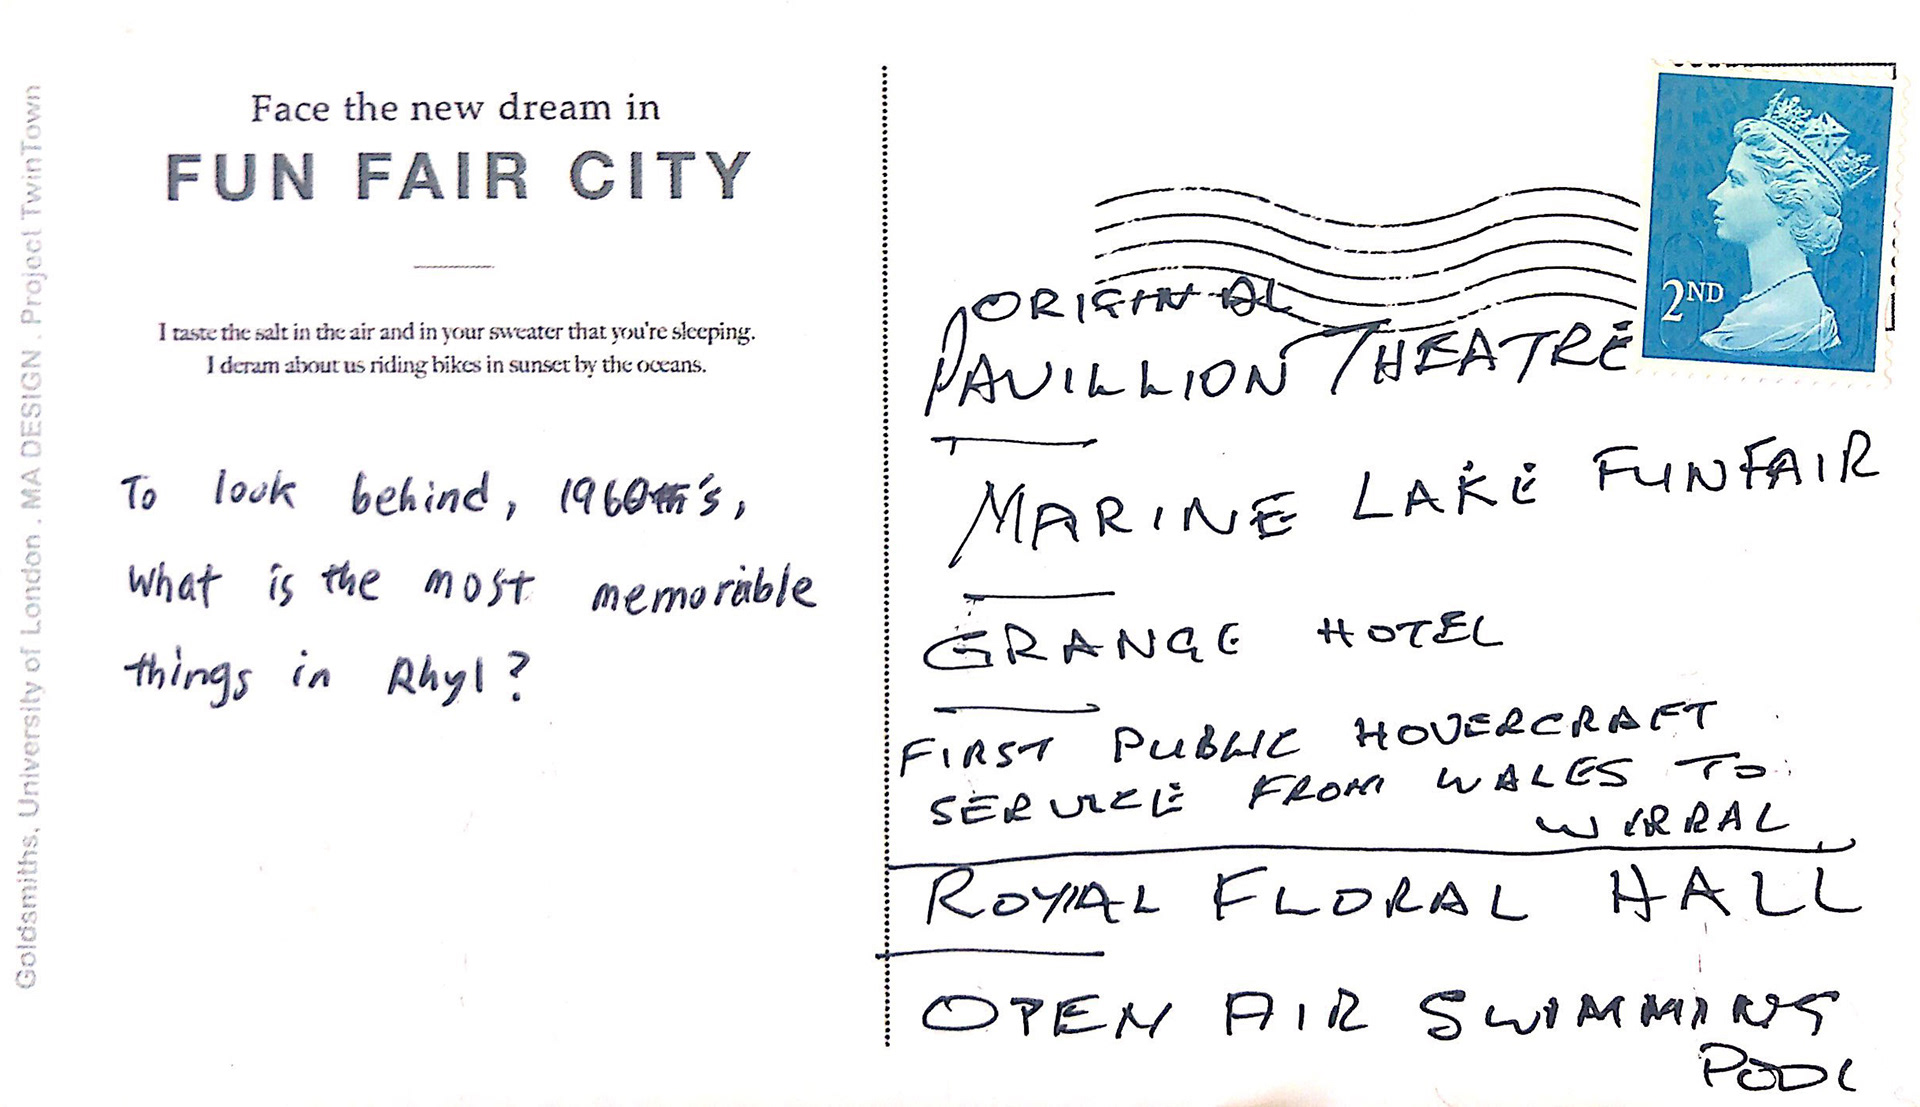 Goldsmiths, University of London. MA DESIGN. Project TwinTown
Face the new dream in
FUN FAIR CITY
I taste the salt in the air and in your sweater that you're sleeping.
I deram about us riding bikes in sunset by the oceans.
To look behind, 1960th's,
What is the most memorable
things in Rhyl?
2ND
ORIGINAL
PAVILLION THEATRE
MARINE LAKE FUNFAIR
GRANGE HOTEL
FIRST PUBLIC HOVERCRAFT
SERVICE FROM WALES TO
WIRRAL
ROYAL FLORAL HALL
OPEN AIR SWIMMING
POOL